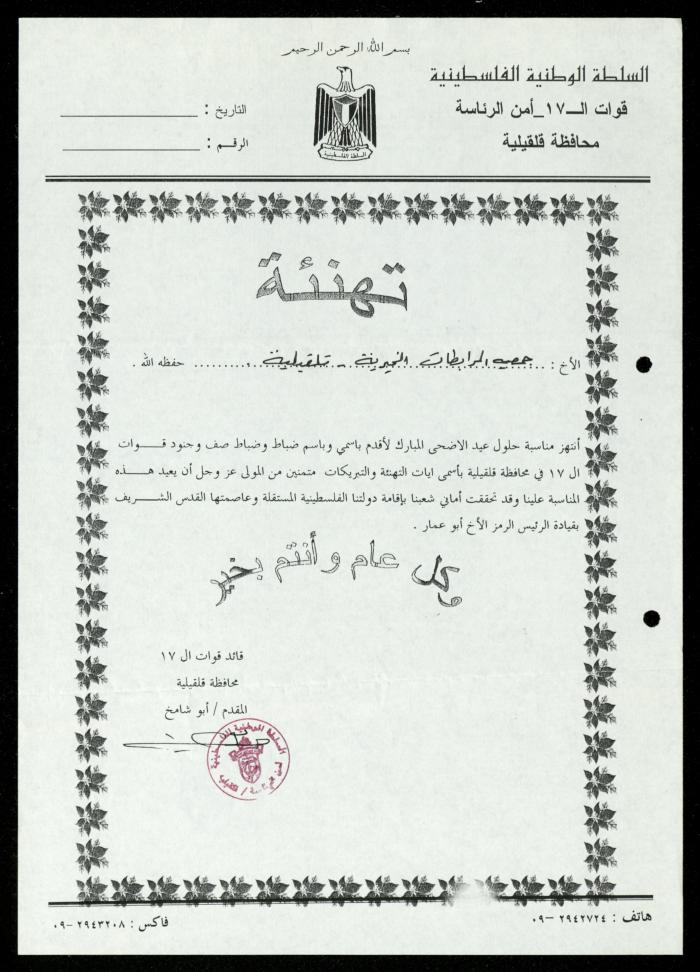 بسم الله الرحمن الرحيم
السلطة الوطنية الفلسطينية
قوات الـ ١٧_أمن الرئاسة
محافظة قلقيلية
التاريخ :
الرقم :
السلطة الفلسطينية
تهنئة
الأخ : جمعيه المرابطات الخيرية - قلقيلية . حفظه الله .
أنتهز مناسبة حلول عيد الاضحى المبارك لأقدم باسمي وباسم ضباط وضباط صف وجنود قوات
ال ١٧ في محافظة قلقيلية بأسمى ايات التهنئة والتبريكات متمنين من المولى عز وجل أن يعيد هذه
المناسبة علينا وقد تحققت أماني شعبنا بإقامة دولتنا الفلسطينية المستقلة وعاصمتها القدس الشريف
بقيادة الرئيس الرمز الأخ أبو عمار .
وكل عام وأنتم بخير
قائد قوات ال ١٧
محافظة قلقيلية
المقدم / أبو شامخ
السلطة الوطنية الفلسطينية
هاتف : ٢٩٤٢٧٢٤ -٠٩
فاكس : ٢٩٤٣٢٠٨ -٠٩